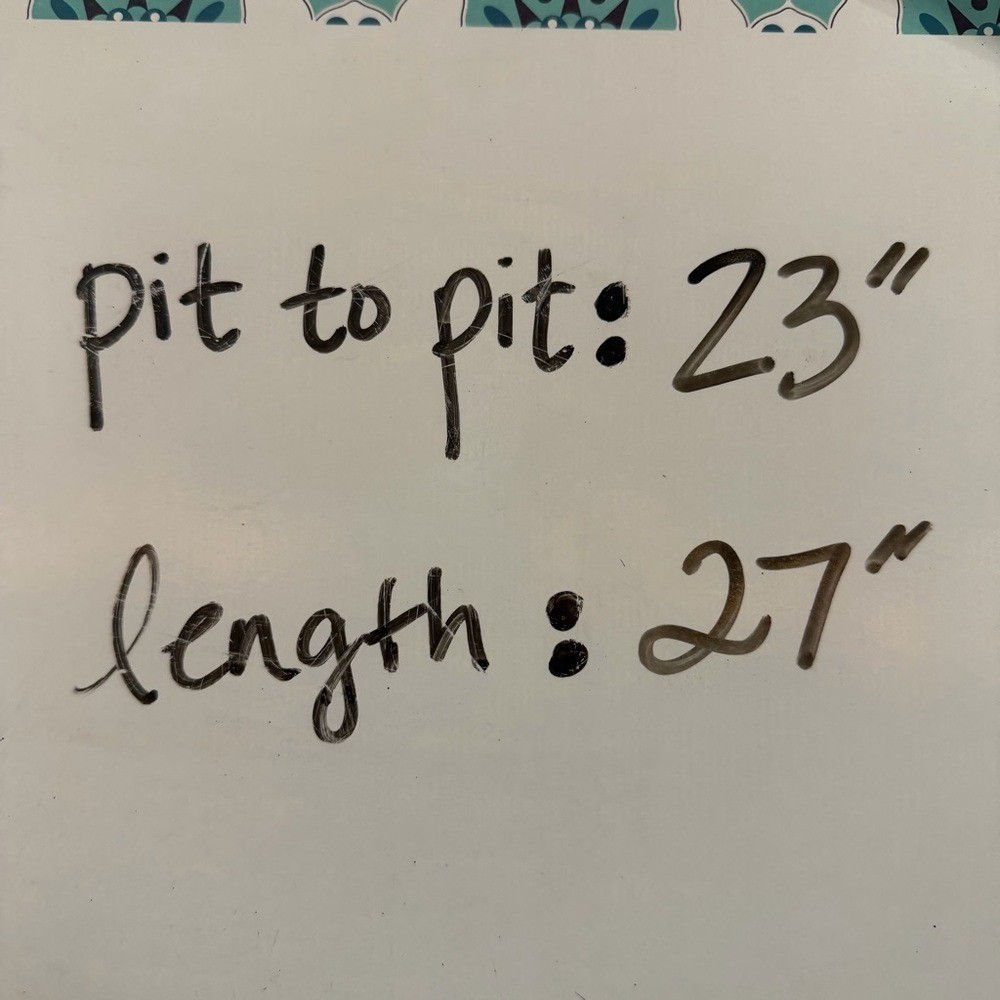 pit to pit: 23"
length : 27"